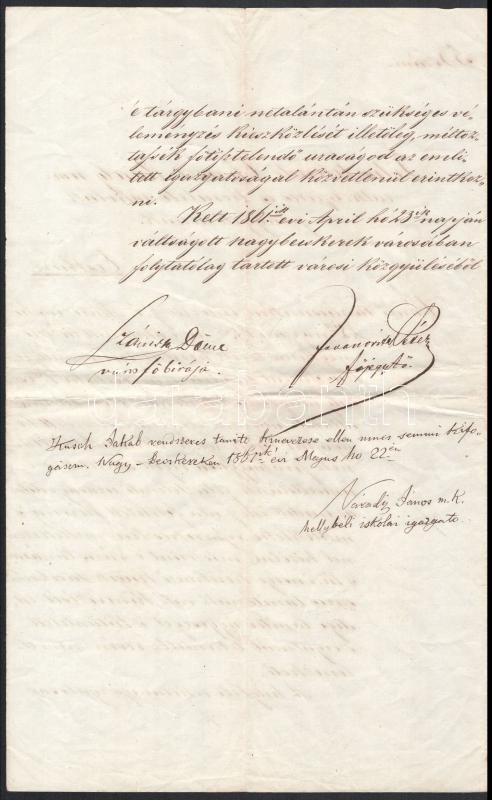 e tárgybani netalántán szükséges vé-
leményzés kieszközlését illetőleg, méltoz-
tassék főtisztelendő uraságod az emli-
tett igazgatósággal közvetlenül érintkez-
ni.
Kelt 1861ik évi April hó 23ik napján
váltságolt nagybecskerek városában
folytatólag tartott városi közgyűléséből
Döme
város főbirája.
Péter
főjegyző.
Jakab rendszeres tanitó kinevezése ellen nincs semmi kifo-
gásom. Nagy-Becskereken 1861ik évi Majus hó 22én
Várady János m.k.
hellybéli iskolai igazgató
darabanth